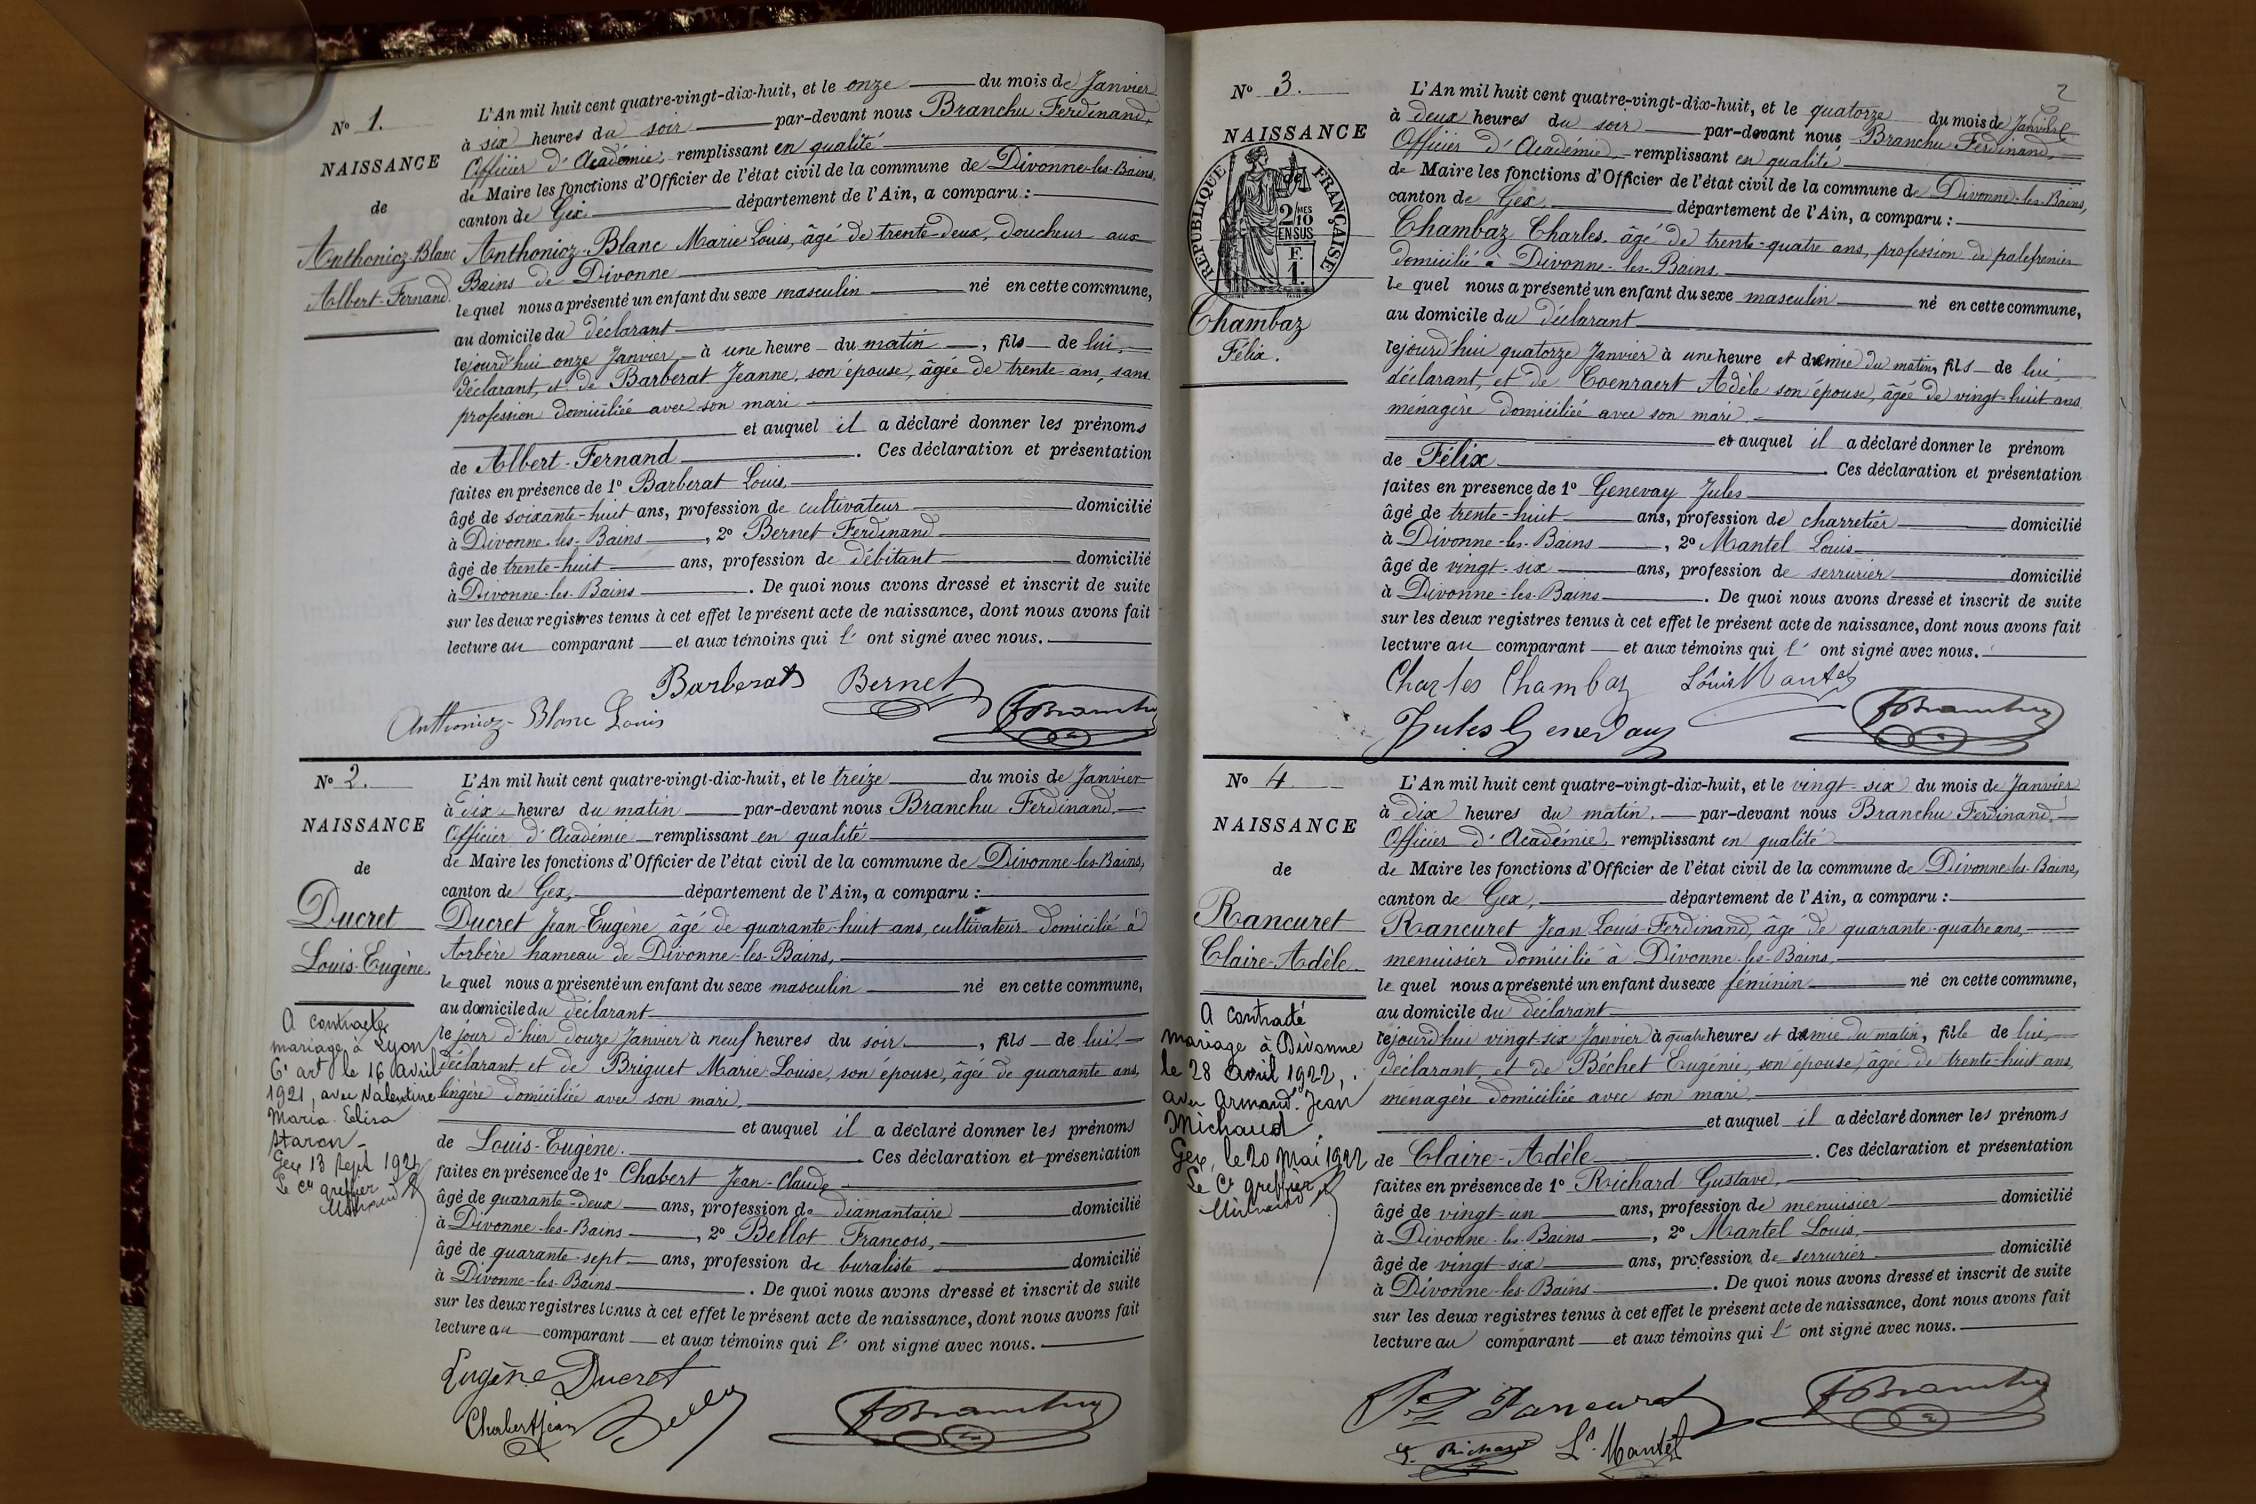 N° 1.
NAISSANCE
de
Anthonioz-Blanc
Albert-Fernand.
L'An mil huit cent quatre-vingt-dix-huit, et le onze du mois de Janvier
à six heures du soir par-devant nous Branchu Ferdinand,
Officier d'Académie, remplissant en qualité
de Maire les fonctions d'Officier de l'état civil de la commune de Divonne-les-Bains,
canton de Gex département de l'Ain, a comparu :
Anthonioz-Blanc Marie Louis, âgé de trente-deux, doucheur aux
Bains de Divonne
lequel nous a présenté un enfant du sexe masculin né en cette commune,
au domicile du déclarant
cejourd'hui onze Janvier, à une heure du matin, fils de lui,
déclarant, et de Barberat Jeanne, son épouse, âgée de trente ans, sans
profession domiciliée avec son mari
et auquel il a déclaré donner les prénoms
de Albert-Fernand. Ces déclaration et présentation
faites en présence de 1° Barberat Louis,
âgé de soixante-huit ans, profession de cultivateur domicilié
à Divonne-les-Bains, 2° Bernet Ferdinand
âgé de trente-huit ans, profession de débitant domicilié
à Divonne-les-Bains. De quoi nous avons dressé et inscrit de suite
sur les deux registres tenus à cet effet le présent acte de naissance, dont nous avons fait
lecture au comparant et aux témoins qui l' ont signé avec nous.
Barberat Bernet
Anthonioz-Blanc Louis FBranchu
N° 2.
NAISSANCE
de
Ducret
Louis-Eugène.
A contracté
mariage à Lyon
6e art le 16 avril
1921, avec Valentine
Maria Elisa
Staron
Gex 13 Sept 1921
Le cis greffier
L'An mil huit cent quatre-vingt-dix-huit, et le treize du mois de Janvier
à dix heures du matin par-devant nous Branchu Ferdinand,
Officier d'Académie remplissant en qualité
de Maire les fonctions d'Officier de l'état civil de la commune de Divonne-les-Bains,
canton de Gex, département de l'Ain, a comparu :
Ducret Jean-Eugène âgé de quarante-huit ans, cultivateur domicilié à
Arbère hameau de Divonne-les-Bains,
lequel nous a présenté un enfant du sexe masculin né en cette commune,
au domicile du déclarant
le jour d'hier douze Janvier à neuf heures du soir, fils de lui,
déclarant et de Briguet Marie-Louise, son épouse, âgée de quarante ans,
lingère domiciliée avec son mari,
et auquel il a déclaré donner les prénoms
de Louis-Eugène. Ces déclaration et présentation
faites en présence de 1° Chabert Jean-Claude,
âgé de quarante-deux ans, profession de diamantaire domicilié
à Divonne-les-Bains, 2° Bellot François,
âgé de quarante-sept ans, profession de buraliste domicilié
à Divonne-les-Bains. De quoi nous avons dressé et inscrit de suite
sur les deux registres tenus à cet effet le présent acte de naissance, dont nous avons fait
lecture au comparant et aux témoins qui l' ont signé avec nous.
Eugène Ducret
Chabert Jean FBranchu
2
N° 3.
NAISSANCE
de
RÉPUBLIQUE FRANÇAISE
2/10MES
EN SUS
F.
1.
Chambaz
Félix.
L'An mil huit cent quatre-vingt-dix-huit, et le quatorze du mois de Janvier
à deux heures du soir par-devant nous Branchu Ferdinand,
Officier d'Académie remplissant en qualité
de Maire les fonctions d'Officier de l'état civil de la commune de Divonne-les-Bains,
canton de Gex, département de l'Ain, a comparu :
Chambaz Charles, âgé de trente-quatre ans, profession de palefrenier
domicilié à Divonne-les-Bains
lequel nous a présenté un enfant du sexe masculin né en cette commune,
au domicile du déclarant
cejourd'hui quatorze Janvier à une heure et demie du matin, fils de lui,
déclarant, et de Coenraert Adèle son épouse, âgée de vingt-huit ans
ménagère domiciliée avec son mari
et auquel il a déclaré donner le prénom
de Félix. Ces déclaration et présentation
faites en présence de 1° Genevay Jules
âgé de trente-huit ans, profession de charretier domicilié
à Divonne-les-Bains, 2° Mantel Louis
âgé de vingt-six ans, profession de serrurier domicilié
à Divonne-les-Bains. De quoi nous avons dressé et inscrit de suite
sur les deux registres tenus à cet effet le présent acte de naissance, dont nous avons fait
lecture au comparant et aux témoins qui l' ont signé avec nous.
Charles Chambaz Louis Mantel
Jules Genevay FBranchu
N° 4
NAISSANCE
de
Rancuret
Claire-Adèle.
A contracté
mariage à Divonne
le 28 avril 1922,
avec Armand Jean
Michaud
Gex, le 20 Mai 1922
Le Cis greffier
L'An mil huit cent quatre-vingt-dix-huit, et le vingt-six du mois de Janvier
à dix heures du matin, par-devant nous Branchu Ferdinand,
Officier d'Académie, remplissant en qualité
de Maire les fonctions d'Officier de l'état civil de la commune de Divonne-les-Bains,
canton de Gex, département de l'Ain, a comparu :
Rancuret Jean-Louis-Ferdinand, âgé de quarante-quatre ans,
menuisier domicilié à Divonne-les-Bains,
lequel nous a présenté un enfant du sexe féminin né en cette commune,
au domicile du déclarant
cejourd'hui vingt-six Janvier à quatre heures et demie du matin, fille de lui,
déclarant, et de Béchet Eugénie, son épouse, âgée de trente-huit ans,
ménagère domiciliée avec son mari
et auquel il a déclaré donner les prénoms
de Claire-Adèle. Ces déclaration et présentation
faites en présence de 1° Richard Gustave,
âgé de vingt-un ans, profession de menuisier domicilié
à Divonne-les-Bains, 2° Mantel Louis,
âgé de vingt-six ans, profession de serrurier domicilié
à Divonne-les-Bains. De quoi nous avons dressé et inscrit de suite
sur les deux registres tenus à cet effet le présent acte de naissance, dont nous avons fait
lecture au comparant et aux témoins qui l' ont signé avec nous.
Rancuret FBranchu
G. Richard Ls Mantel